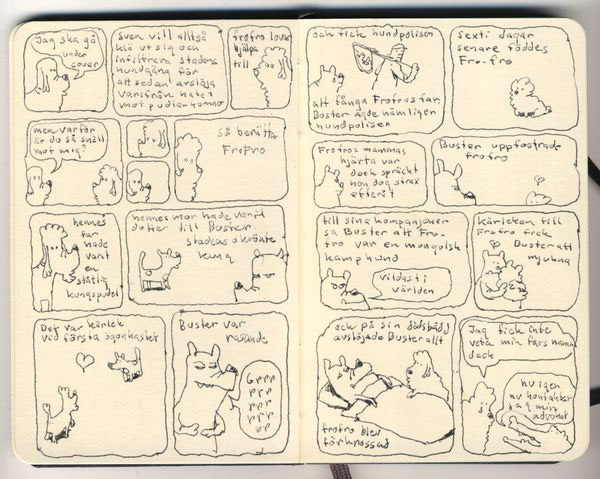 Jag ska gå
under
cover
sven vill alltså
klä ut sig och
infiltrera stadens
hundgäng för
att sedan avslöja
varifrån hatet
mot pudlar kommer
frofro lovar
hjälpa
till
men varför
är du så snäll
mot mig?
så berättar
Frofro
hennes
far
hade
varit
en
ståtlig
kungspudel
hennes mor hade varit
dotter till Buster
stadens okrönte
kung
Det var kärlek
vid första ögonkastet
Buster var
rasande
Grrr
rrr
rrr
rrr
rr
och fick hundpolisen
att fånga Frofros far
Buster ägde nämligen
hundpolisen
sextio dagar
senare föddes
Fro-fro
Frofros mammas
hjärta var
dock spräckt
hon dog strax
efteråt
Buster uppfostrade
frofro
till sina kompanjoner
sa Buster att Fro-
fro var en mongolsk
kamphund
vildast i
världen
kärleken till
Frofro fick
Buster att
mjukna
och på sin dödsbädd
avslöjade Buster allt
frofro blev
förkrossad
Jag fick inte
veta min fars namn
dock
nu igen
nu kontaktar
jag min
advokat